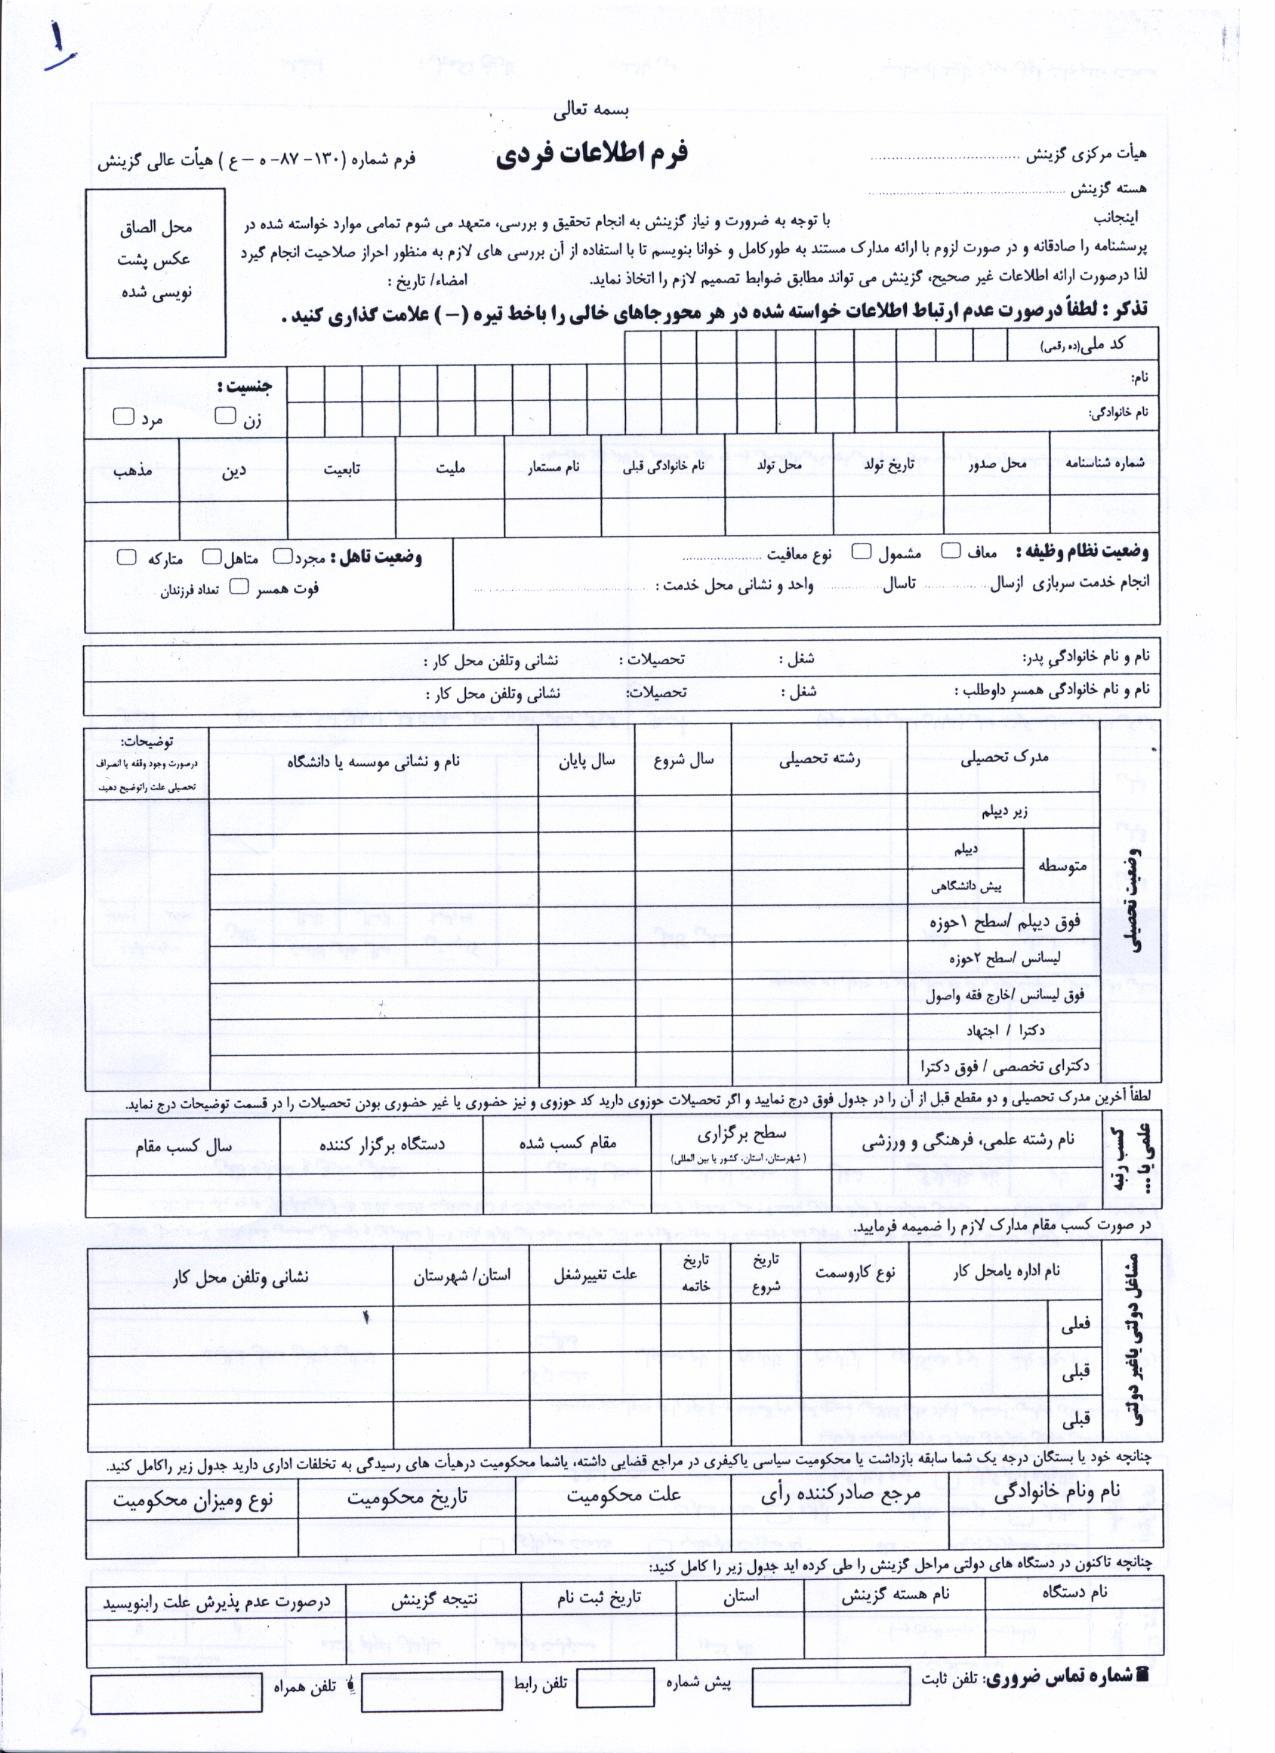 ۱
بسمه تعالی
هیأت مرکزی گزینش ........................................
فرم اطلاعات فردی
فرم شماره (۱۳۰- ۸۷- ه – ع ) هیأت عالی گزینش
هسته گزینش ........................................
محل الصاق
عکس پشت
نویسی شده
اینجانب با توجه به ضرورت و نیاز گزینش به انجام تحقیق و بررسی، متعهد می شوم تمامی موارد خواسته شده در
پرسشنامه را صادقانه و در صورت لزوم با ارائه مدارک مستند به طورکامل و خوانا بنویسم تا با استفاده از آن بررسی های لازم به منظور احراز صلاحیت انجام گیرد
لذا درصورت ارائه اطلاعات غیر صحیح، گزینش می تواند مطابق ضوابط تصمیم لازم را اتخاذ نماید. امضاء/ تاریخ :
تذکر : لطفاً درصورت عدم ارتباط اطلاعات خواسته شده در هر محورجاهای خالی را باخط تیره (–) علامت گذاری کنید .
کد ملی(ده رقمی)
نام:
نام خانوادگی:
جنسیت :
زن مرد
شماره شناسنامه محل صدور تاریخ تولد محل تولد نام خانوادگی قبلی نام مستعار ملیت تابعیت دین مذهب
وضعیت نظام وظیفه : معاف مشمول نوع معافیت ....................
انجام خدمت سربازی ازسال ................ تاسال ............ واحد و نشانی محل خدمت : ........................................
وضعیت تاهل : مجرد متاهل متارکه
فوت همسر تعداد فرزندان
نام و نام خانوادگی پدر: شغل : تحصیلات : نشانی وتلفن محل کار :
نام و نام خانوادگی همسر داوطلب : شغل : تحصیلات: نشانی وتلفن محل کار :
وضعیت تحصیلی
مدرک تحصیلی رشته تحصیلی سال شروع سال پایان نام و نشانی موسسه یا دانشگاه
توضیحات:
درصورت وجود وقفه یا انصراف
تحصیلی علت راتوضیح دهید.
زیر دیپلم
متوسطه
دیپلم
پیش دانشگاهی
فوق دیپلم /سطح ۱حوزه
لیسانس /سطح ۲حوزه
فوق لیسانس /خارج فقه واصول
دکترا / اجتهاد
دکترای تخصصی / فوق دکترا
لطفاً آخرین مدرک تحصیلی و دو مقطع قبل از آن را در جدول فوق درج نمایید و اگر تحصیلات حوزوی دارید کد حوزوی و نیز حضوری یا غیر حضوری بودن تحصیلات را در قسمت توضیحات درج نماید.
کسب رتبه
علمی یا ...
نام رشته علمی، فرهنگی و ورزشی سطح برگزاری مقام کسب شده دستگاه برگزار کننده سال کسب مقام
(شهرستان، استان، کشور یا بین المللی)
در صورت کسب مقام مدارک لازم را ضمیمه فرمایید.
مشاغل دولتی یاغیر دولتی
نام اداره یامحل کار نوع کاروسمت تاریخ شروع تاریخ خاتمه علت تغییرشغل استان/ شهرستان نشانی وتلفن محل کار
فعلی
قبلی
قبلی
چنانچه خود یا بستگان درجه یک شما سابقه بازداشت یا محکومیت سیاسی یاکیفری در مراجع قضایی داشته، یاشما محکومیت درهیأت های رسیدگی به تخلفات اداری دارید جدول زیر راکامل کنید.
نام ونام خانوادگی مرجع صادرکننده رأی علت محکومیت تاریخ محکومیت نوع ومیزان محکومیت
چنانچه تاکنون در دستگاه های دولتی مراحل گزینش را طی کرده اید جدول زیر را کامل کنید:
نام دستگاه نام هسته گزینش استان تاریخ ثبت نام نتیجه گزینش درصورت عدم پذیرش علت رابنویسید
شماره تماس ضروری: تلفن ثابت پیش شماره تلفن رابط تلفن همراه